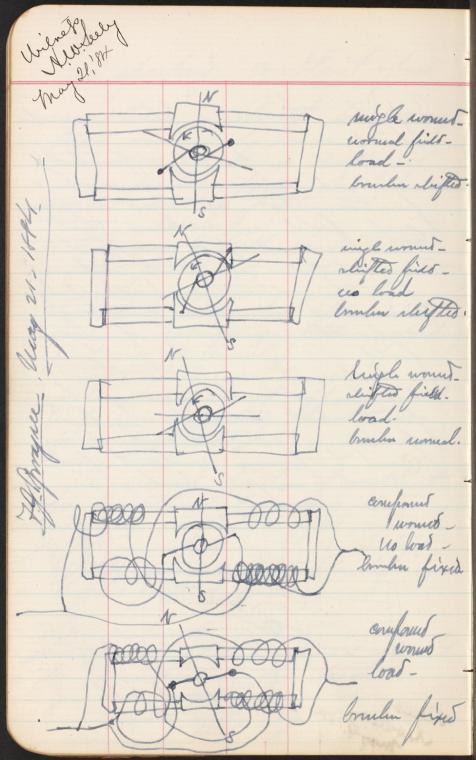 Witness
May 21, '84
F. J. Sprague. May 21-1884
N
S
single wound-
normal field-
load-
brushes shifted.
N
S
single wound-
shifted field-
no load
brushes shifted.
N
S
Single wound-
shifted field-
load-
brushes normal.
N
S
compound
wound-
no load-
brushes fixed
N
S
compound
wound
load-
brushes fixed